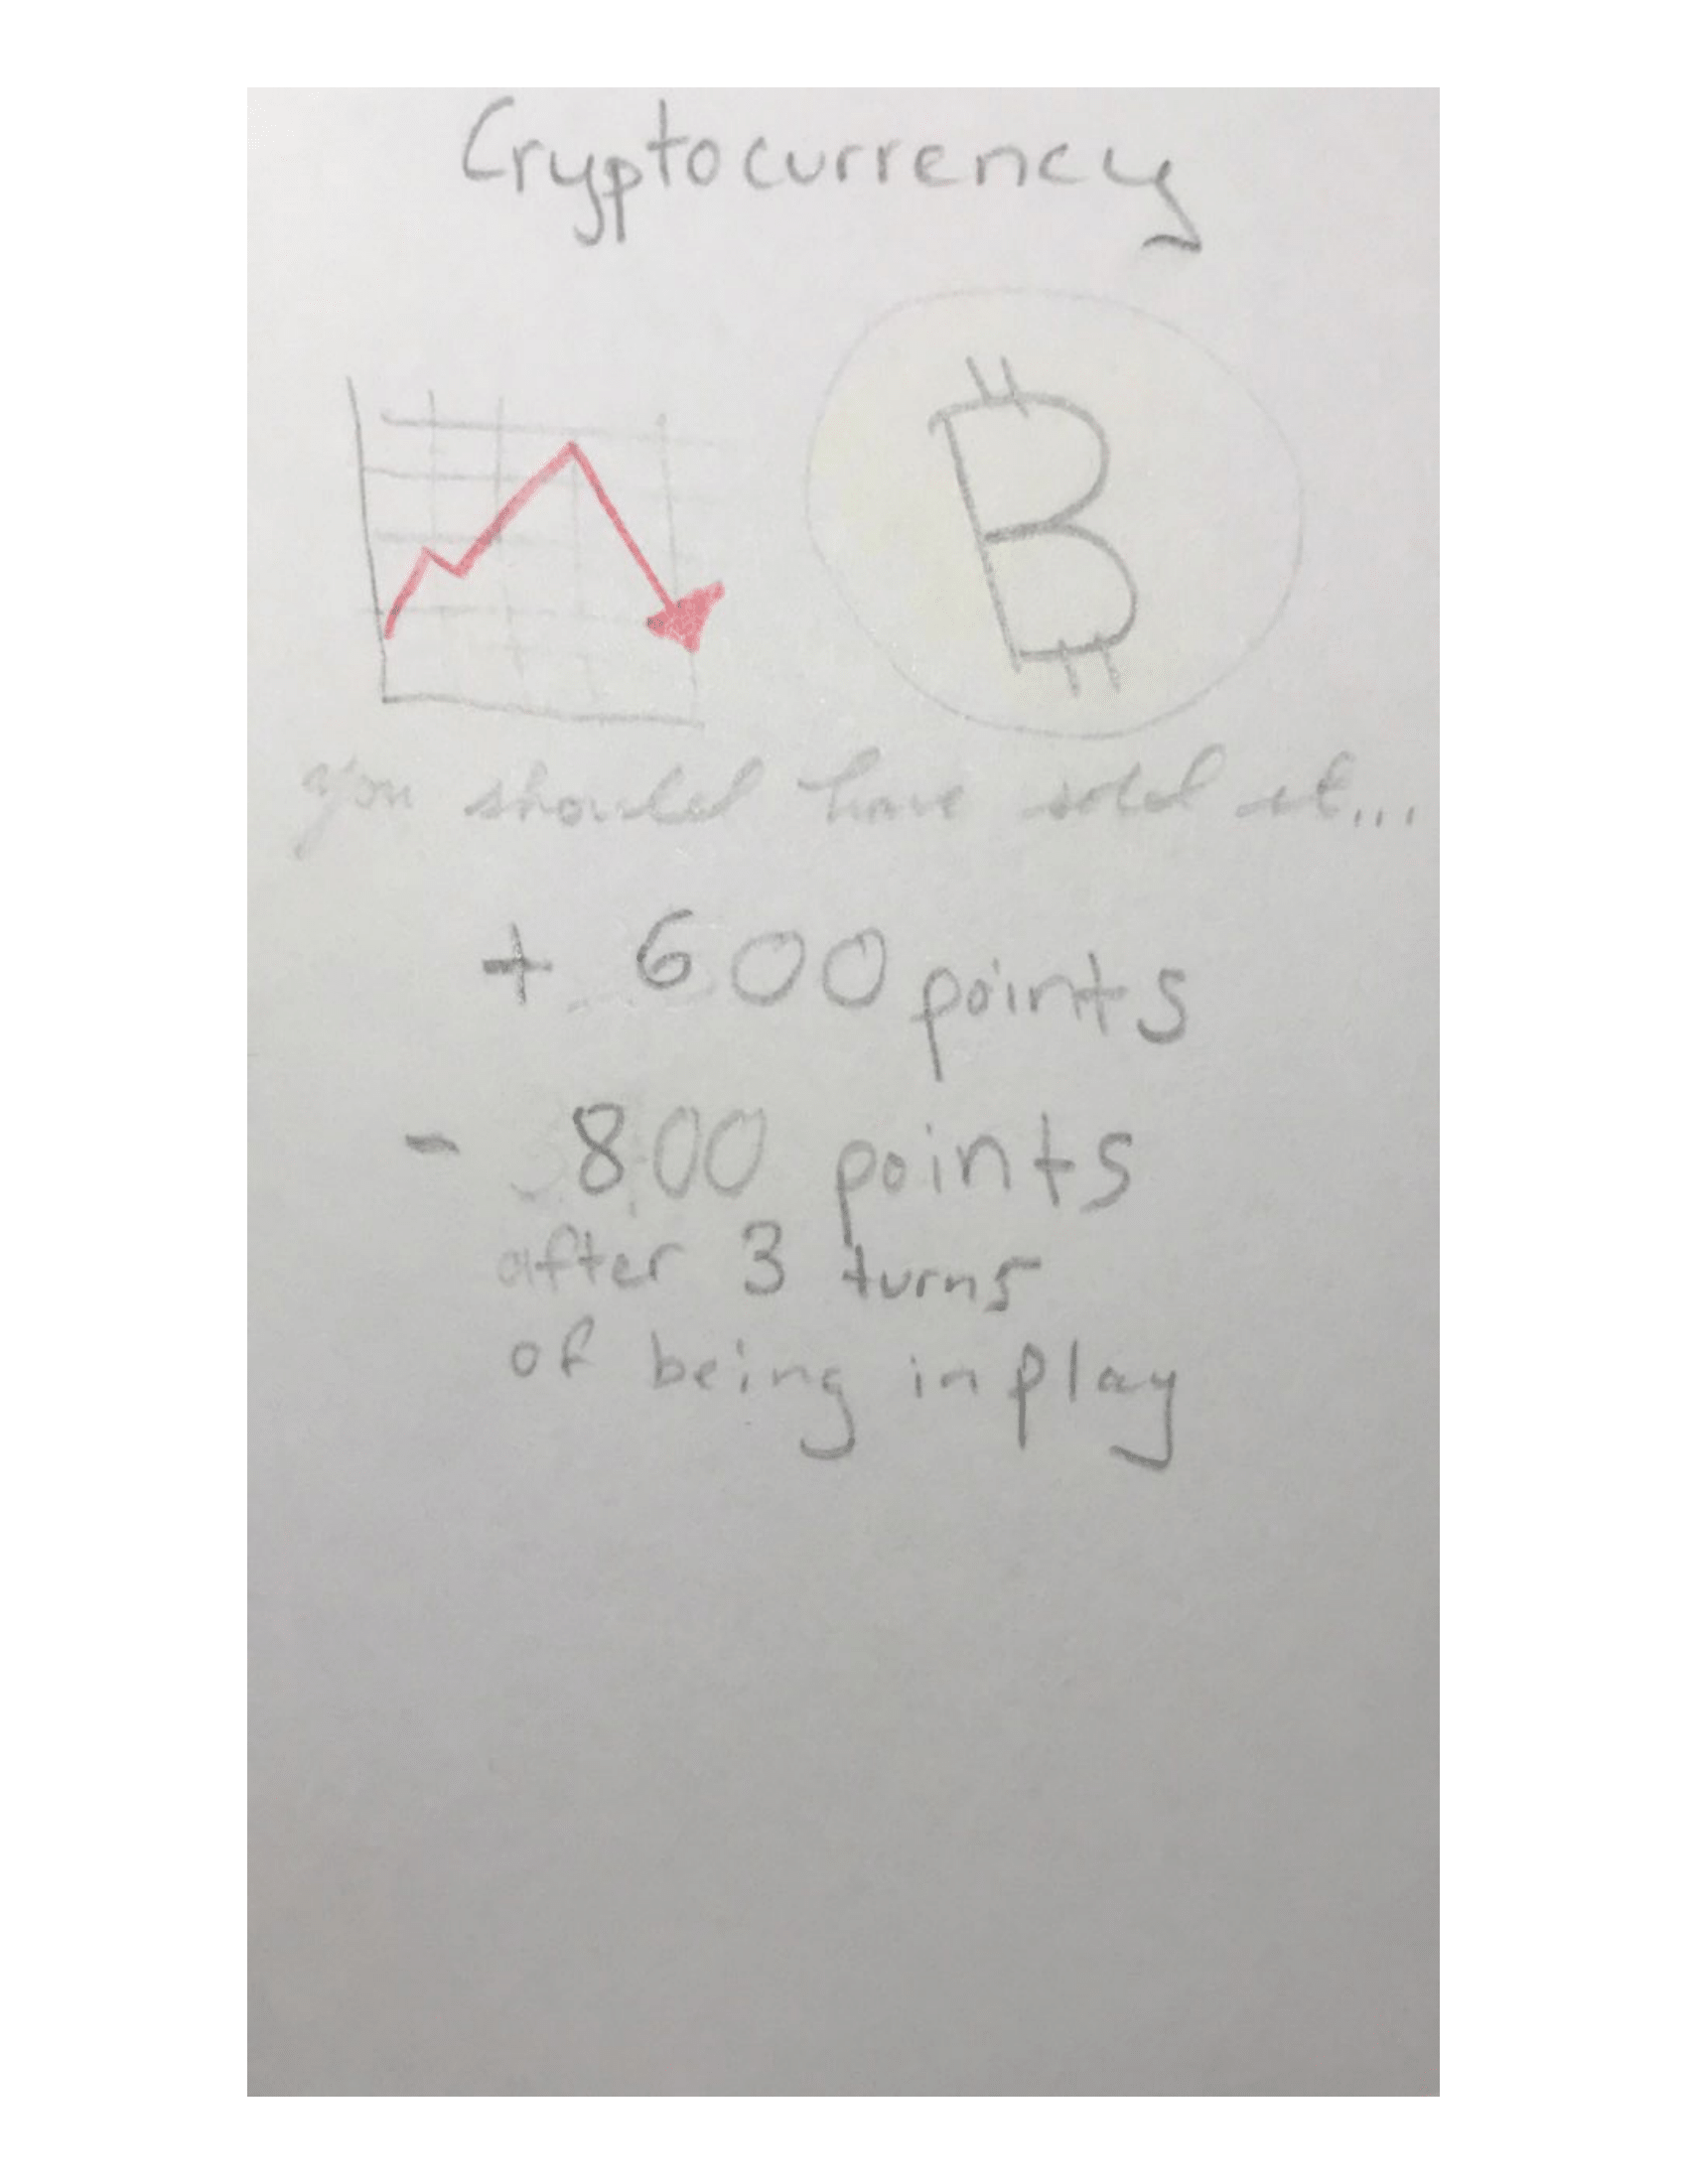 Cryptocurrency
B
you should have sold it...
+ 600 points
- 800 points
after 3 turns
of being in play